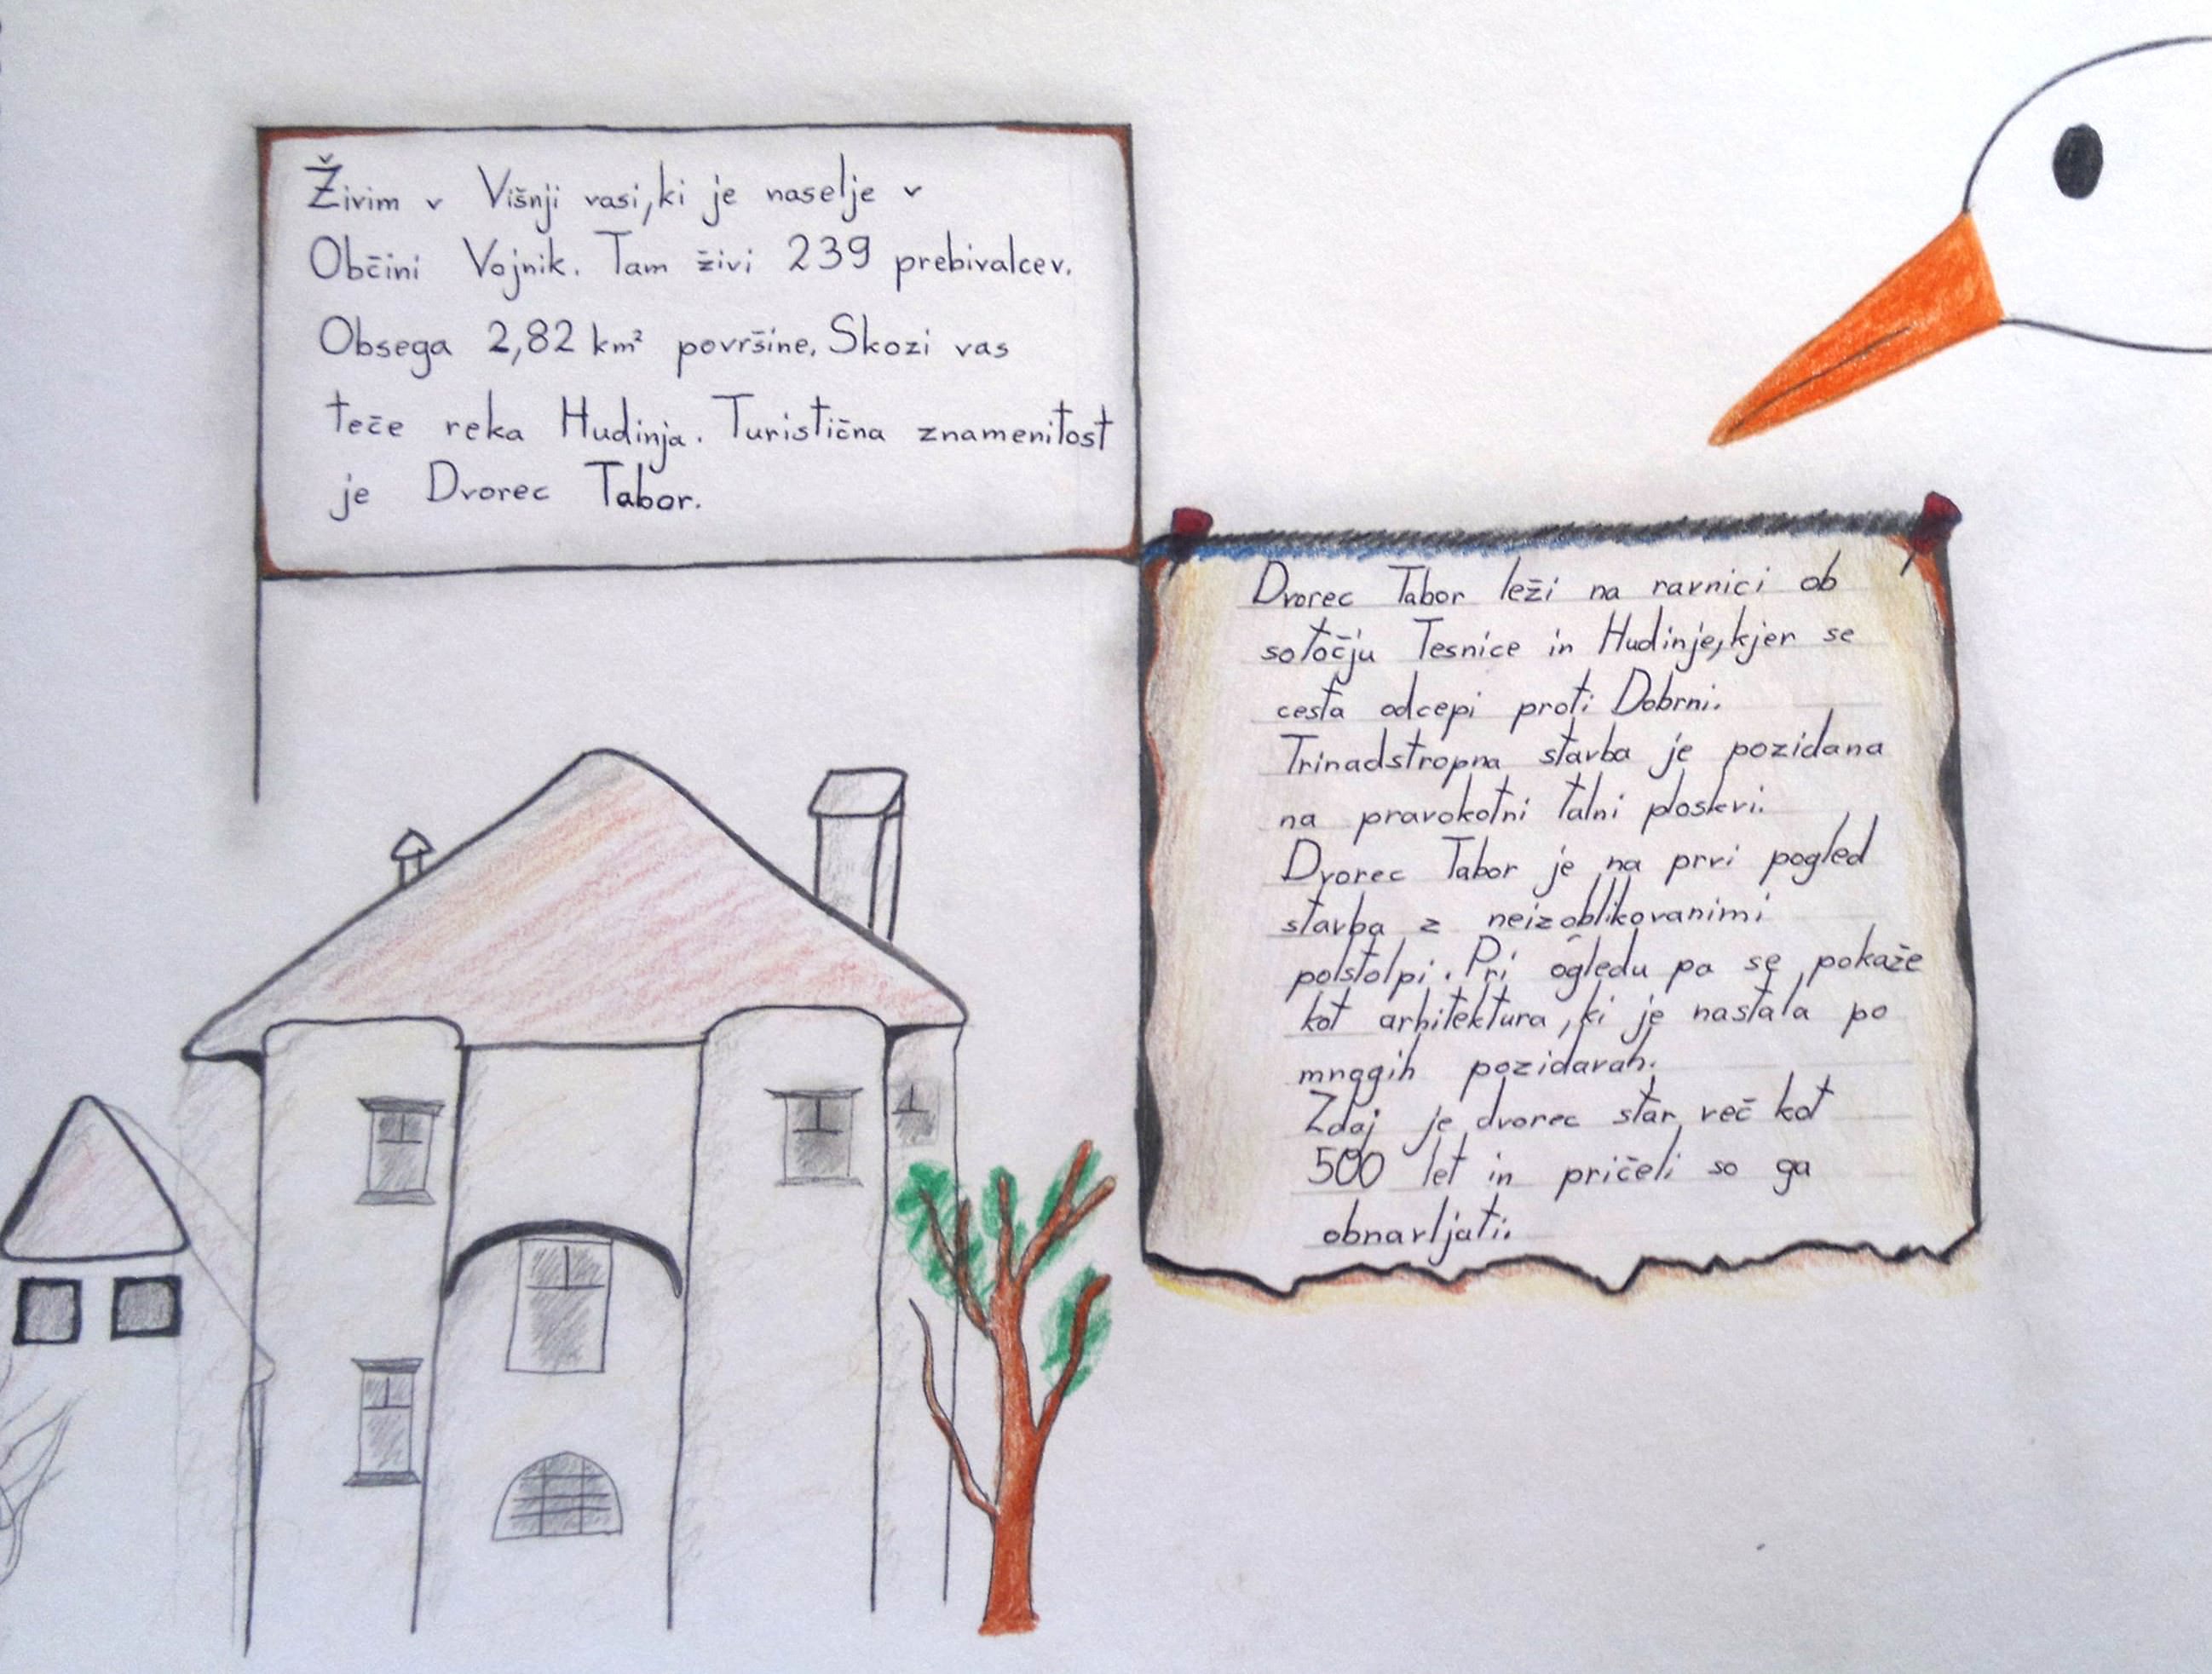 Živim v Višnji vasi, ki je naselje v
Občini Vojnik. Tam živi 239 prebivalcev.
Obsega 2,82 km² površine. Skozi vas
teče reka Hudinja. Turistična znamenitost
je Dvorec Tabor.
Dvorec Tabor leži na ravnici ob
sotočju Tesnice in Hudinje, kjer se
cesta odcepi proti Dobrni.
Trinadstropna stavba je pozidana
na pravokotni talni ploskvi.
Dvorec Tabor je na prvi pogled
stavba z neizoblikovanimi
polstolpi. Pri ogledu pa se pokaže
kot arhitektura, ki je nastala po
mnogih pozidavah.
Zdaj je dvorec star več kot
500 let in pričeli so ga
obnavljati.